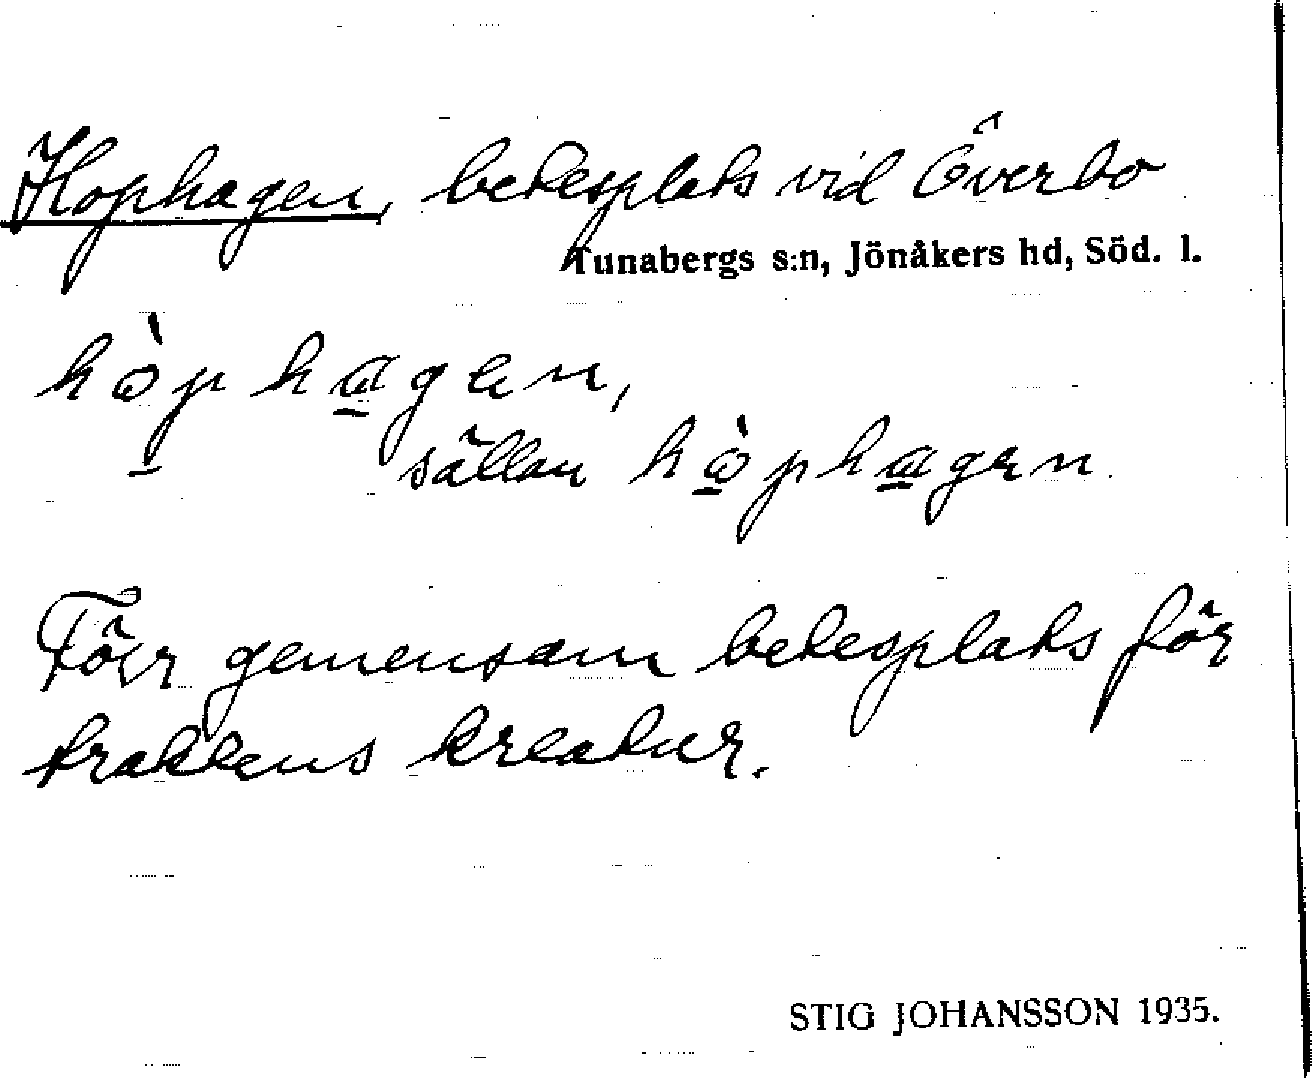 Hophagen, betesplats vid Överbo
Tunabergs s:n, Jönåkers hd, Söd. l.
hò̱phα̱gen,
sällan hò̱phα̱gen.
Förr gemensam betesplats för
traktens kreatur.
STIG JOHANSSON 1935.